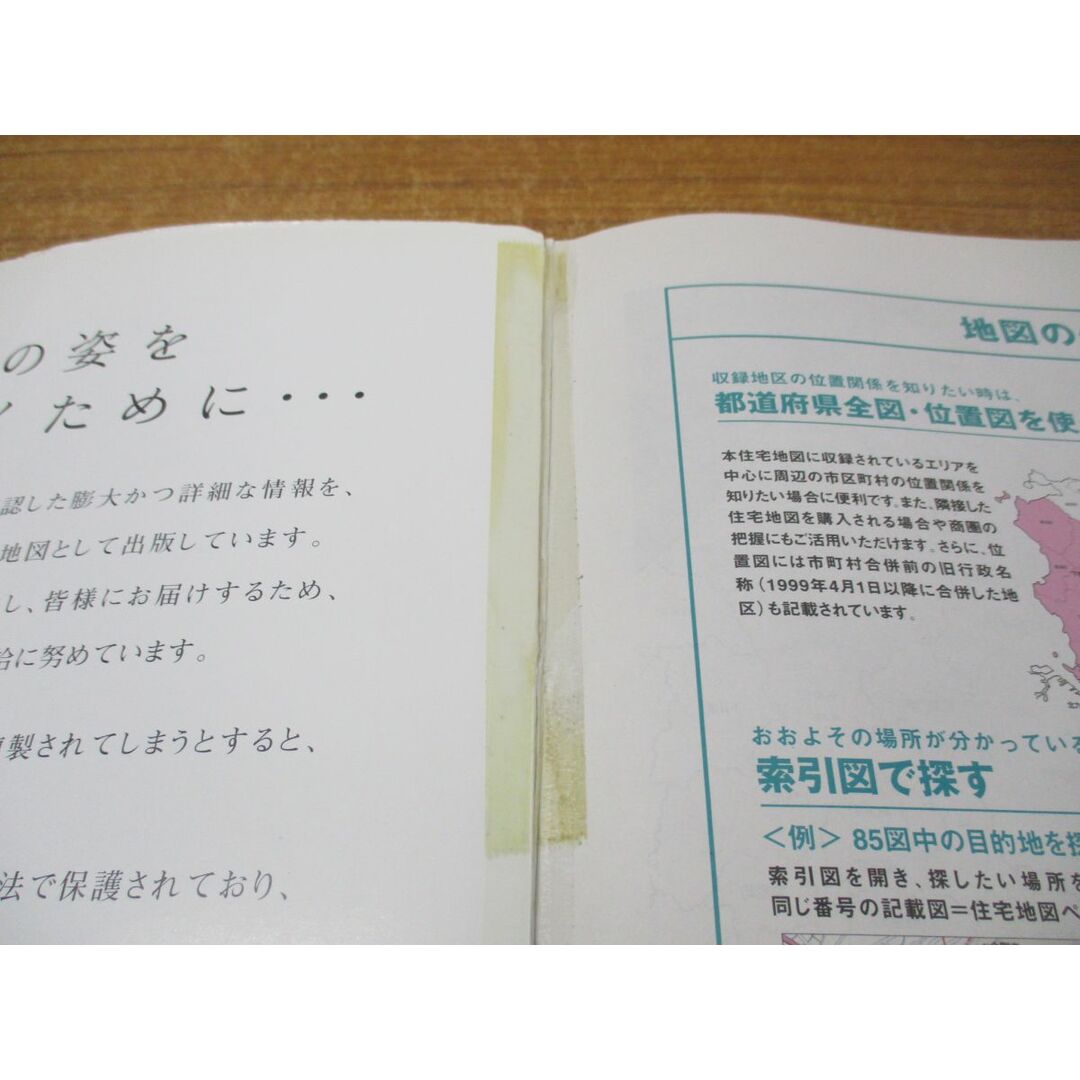 の姿を
ために・・・
認した膨大かつ詳細な情報を、
地図として出版しています。
し、皆様にお届けするため、
に努めています。
製されてしまうとすると、
法で保護されており、
地図の
収録地区の位置関係を知りたい時は、
都道府県全図・位置図を使
本住宅地図に収録されているエリアを
中心に周辺の市区町村の位置関係を
知りたい場合に便利です。また、隣接した
住宅地図を購入される場合や商圏の
把握にもご活用いただけます。さらに、位
置図には市町村合併前の旧行政名
称（1999年4月1日以降に合併した地
区）も記載されています。
おおよその場所が分かっている
索引図で探す
＜例＞ 85図中の目的地を探
索引図を開き、探したい場所を
同じ番号の記載図＝住宅地図ペ